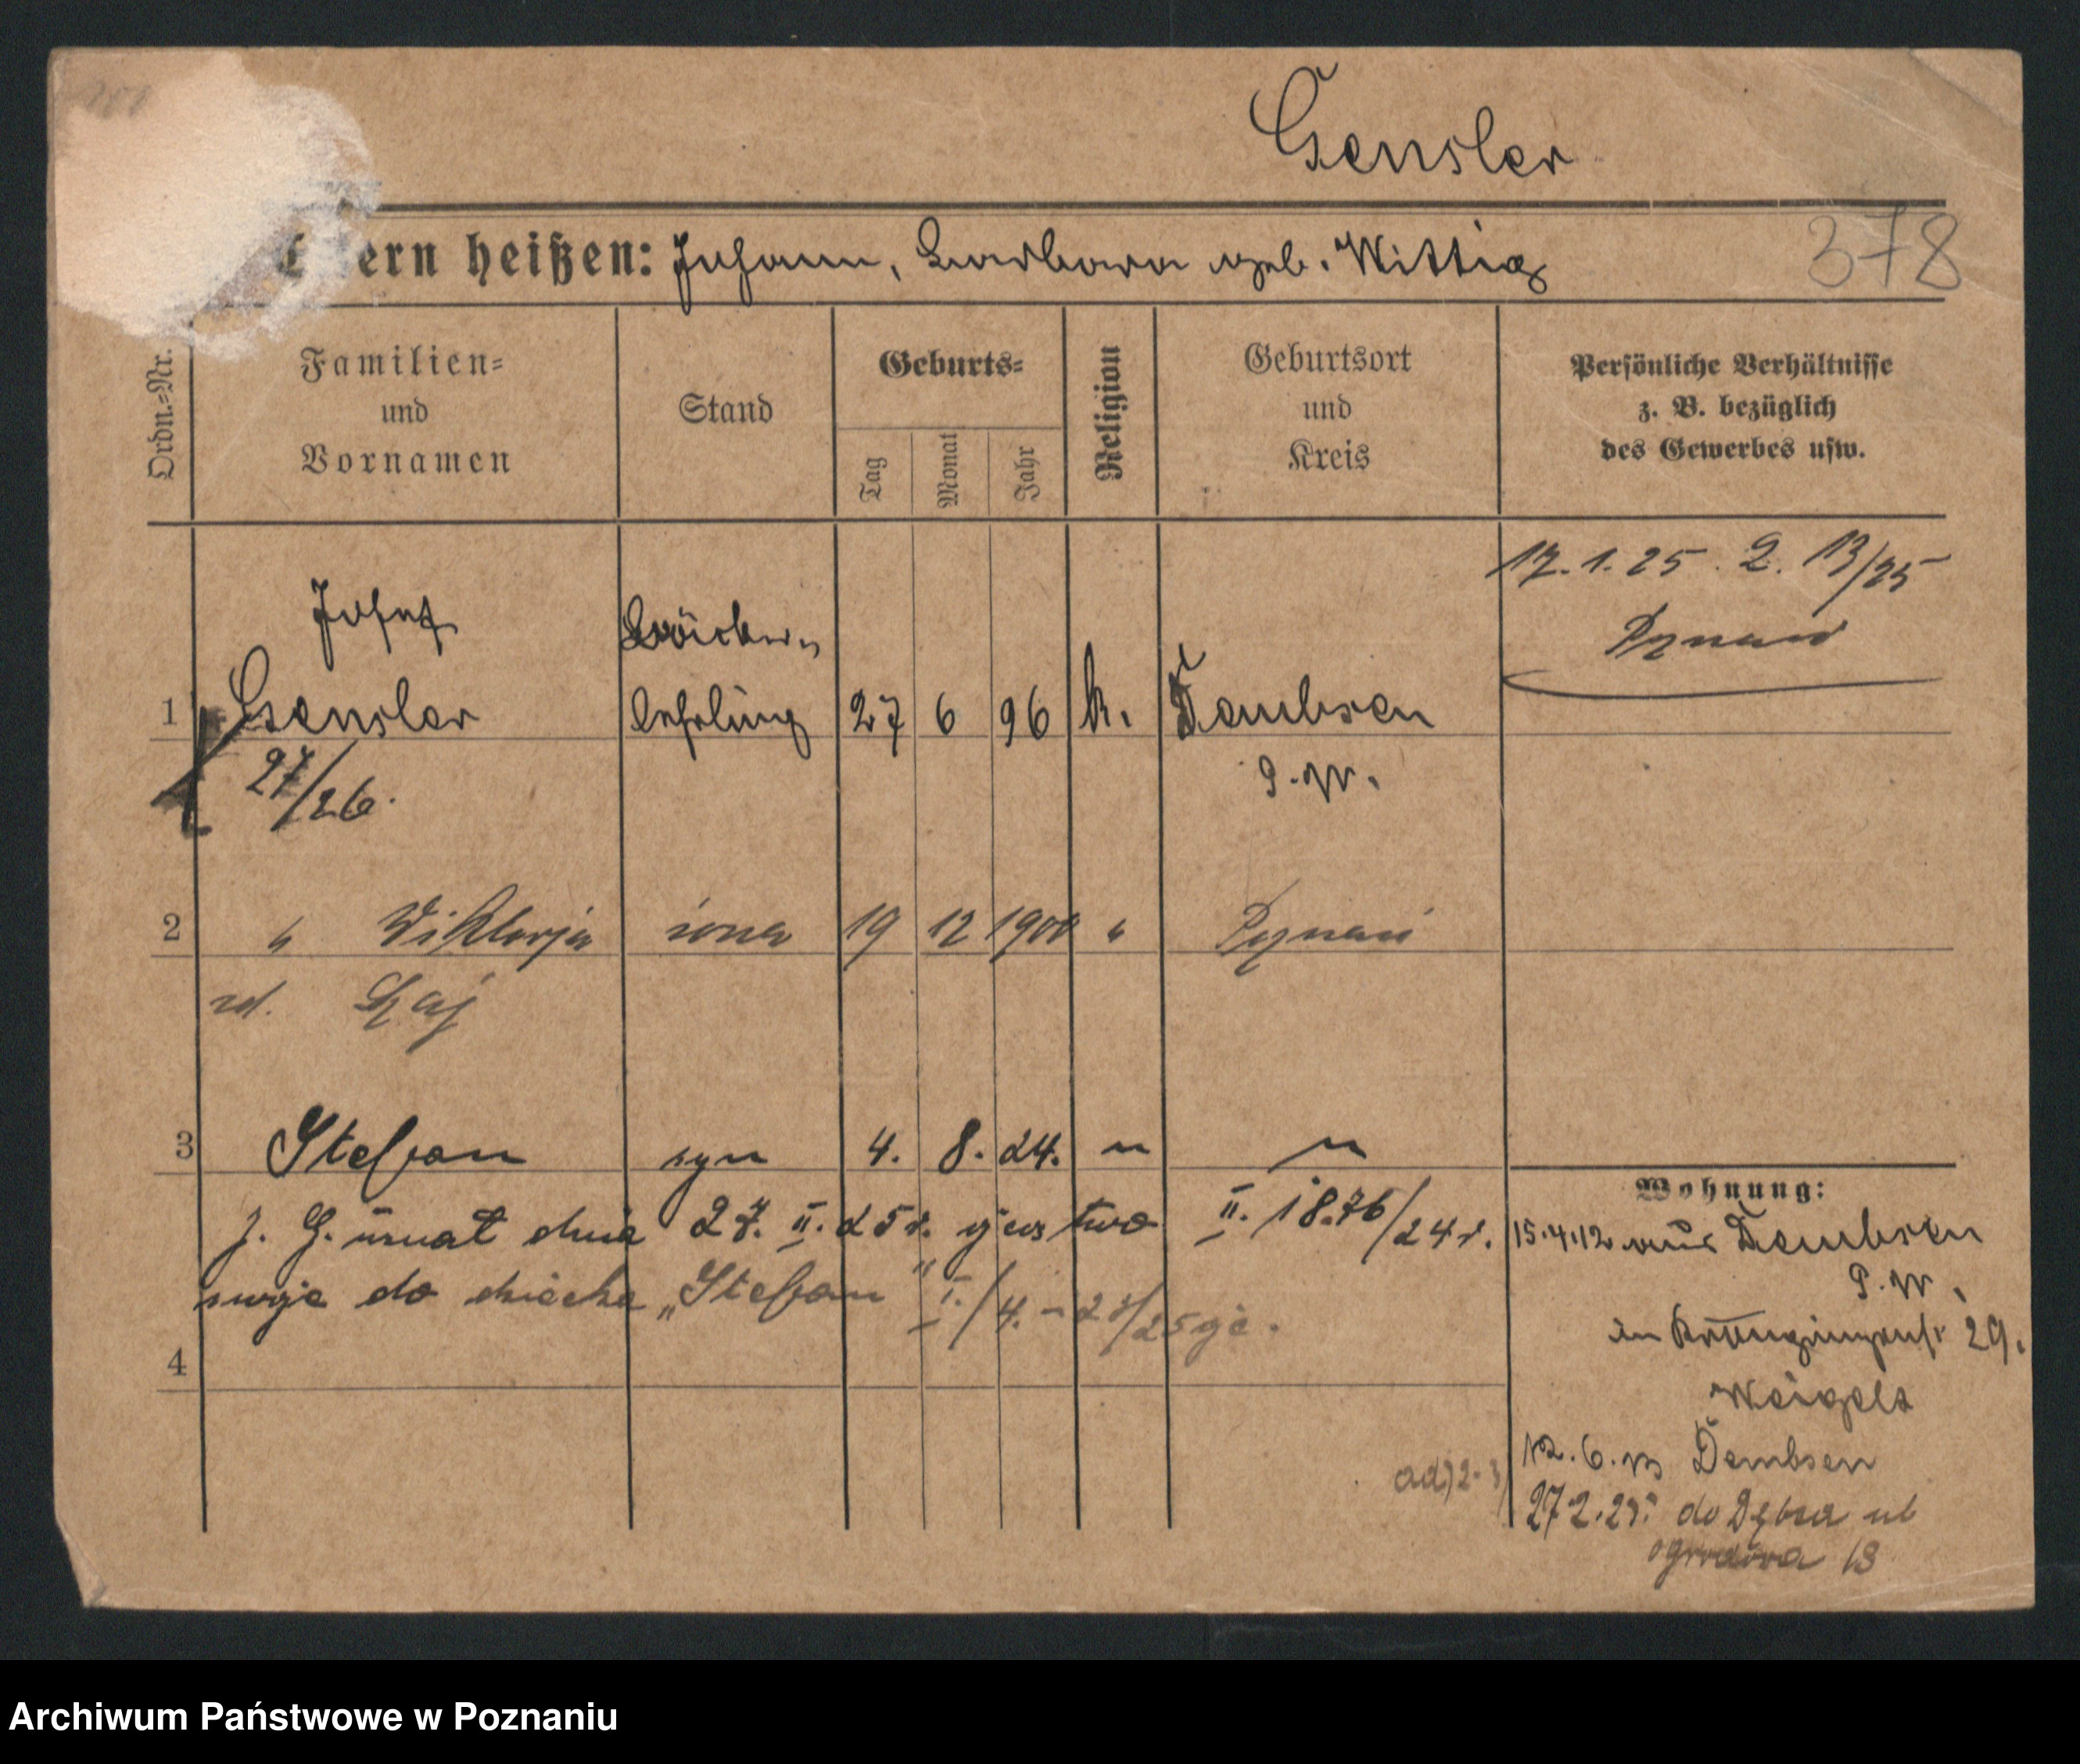 Gensler
ern heißen: Johann, Barbara geb. Wittig
378
Ordn.-Nr.
Familien=
und
Vornamen
Stand
Geburts=
Tag
Monat
Jahr
Religion
Geburtsort
und
Kreis
Persönliche Verhältnisse
z. B. bezüglich
des Gewerbes usw.
17.1.25. 2. 13/25
Poznań
Josef
1 Gensler
lehrling 27 6 96 k. Dembsen
P. W.
27/26.
2 " Wiktorja żona 19 12 1900 " Poznań
zd. Gaj
3 Stefan syn 4. 8. 24. " "
J. G. uznał dnia 27. II. 25 r. ojcostwo II. 1876/24 r.
swoje do dziecka „Stefan"
4
Wohnung:
15.4.12 aus Dembsen
P. W.
in 29.
Weigelt
12.6. Dembsen
ad) 2-3)
27.2.25 do Dębca ul
ogrodowa 13
Archiwum Państwowe w Poznaniu